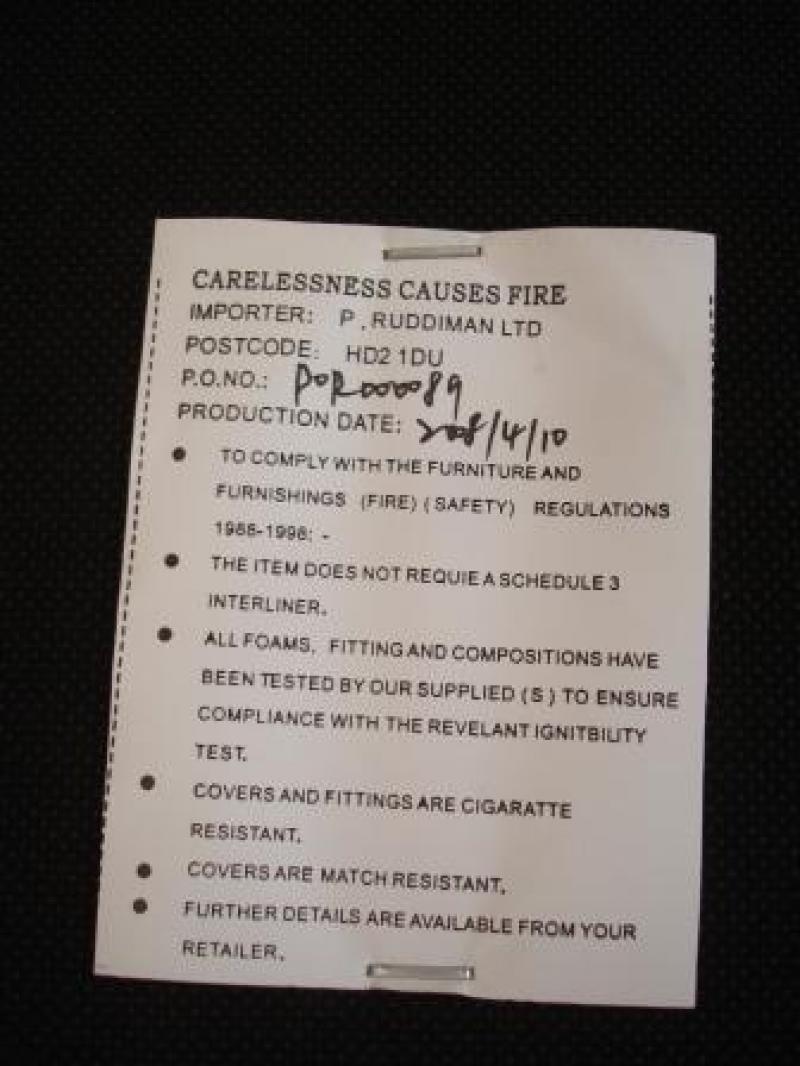 CARELESSNESS CAUSES FIRE
IMPORTER: P. RUDDIMAN LTD
POSTCODE: HD2 1DU
P.O.NO.: POR000089
PRODUCTION DATE: 2008/4/10
● TO COMPLY WITH THE FURNITURE AND
FURNISHINGS (FIRE) (SAFETY) REGULATIONS
1988-1998: -
● THE ITEM DOES NOT REQUIE A SCHEDULE 3
INTERLINER.
● ALL FOAMS, FITTING AND COMPOSITIONS HAVE
BEEN TESTED BY OUR SUPPLIED (S) TO ENSURE
COMPLIANCE WITH THE REVELANT IGNITBILITY
TEST.
● COVERS AND FITTINGS ARE CIGARATTE
RESISTANT.
● COVERS ARE MATCH RESISTANT.
● FURTHER DETAILS ARE AVAILABLE FROM YOUR
RETAILER.